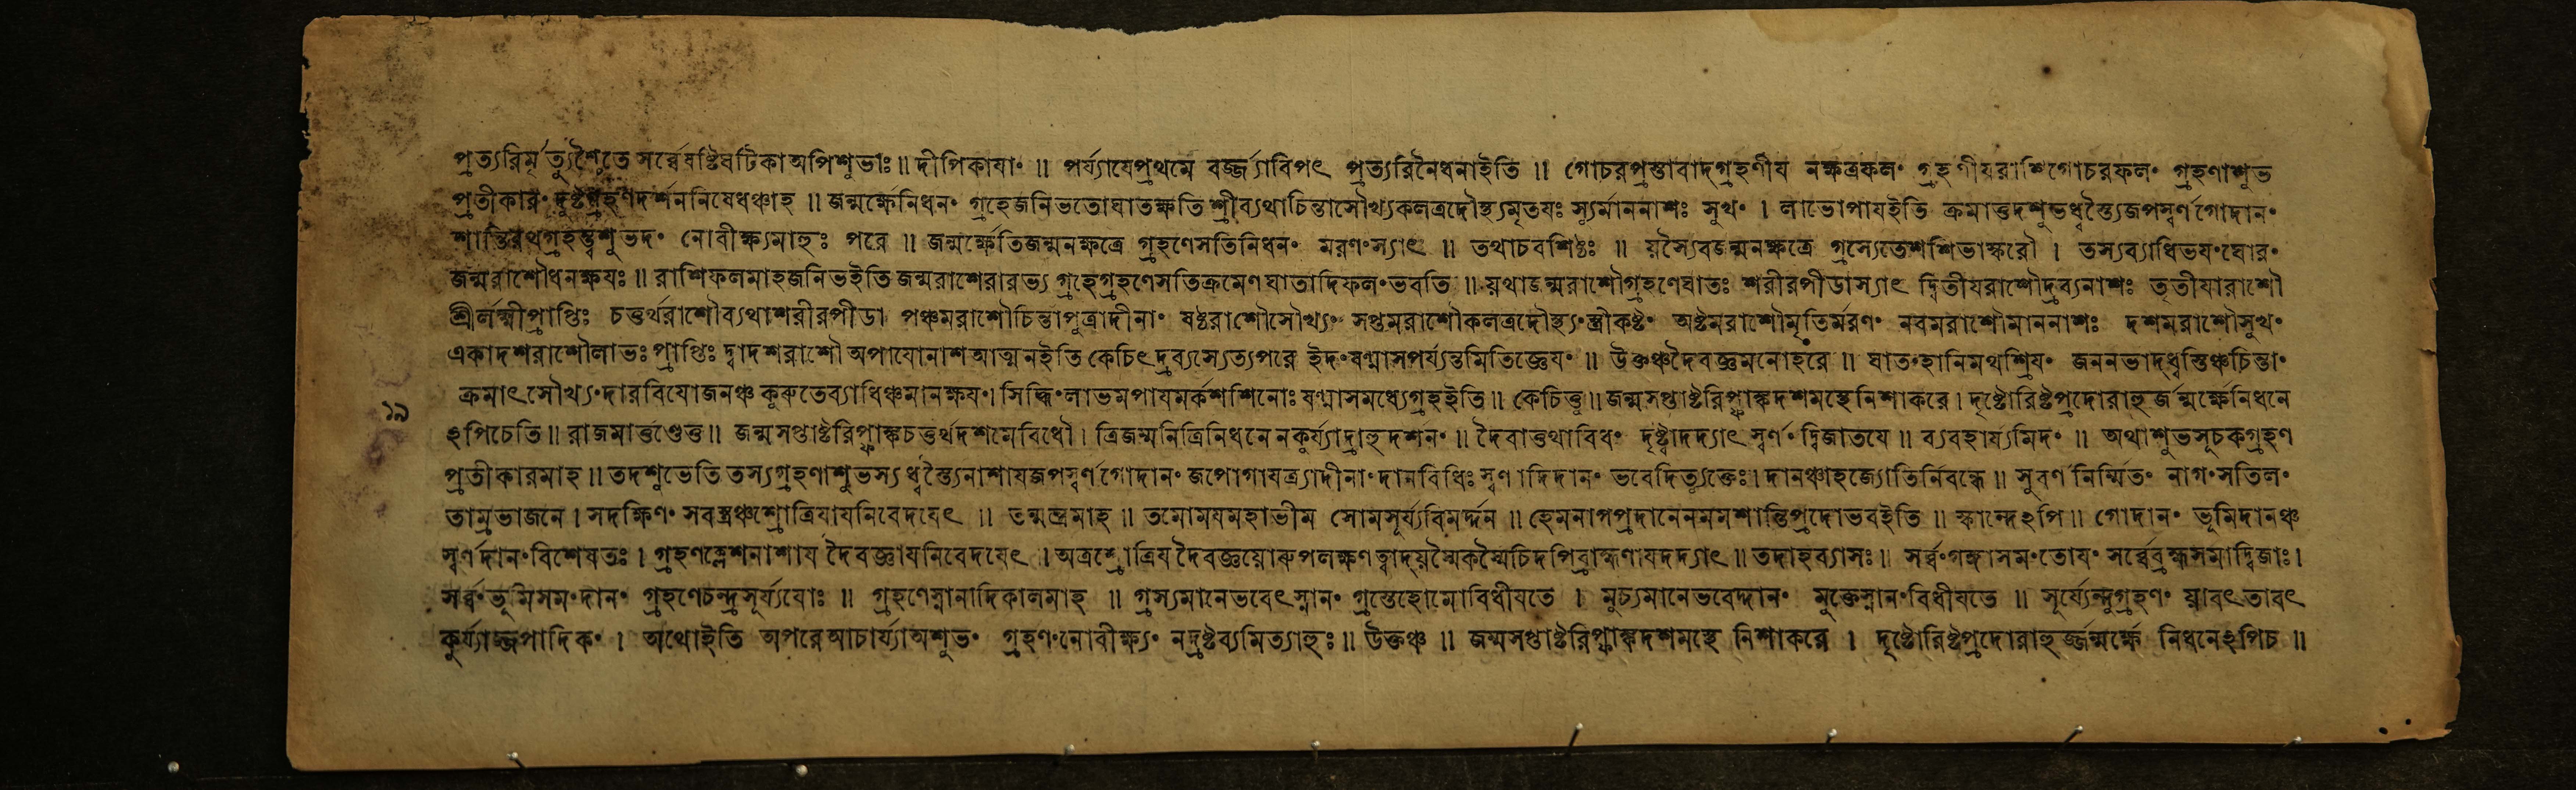 প্রত্যরিমৃত্যুশ্চৈতে সর্ব্বেষষ্টিঘটিকা অপিশুভাঃ ॥ দীপিকাযাং ॥ পর্য্যাযেপ্রথমে বর্জ্জ্যাবিপৎ প্রত্যরিনৈধনাইতি ॥ গোচরপ্রস্তাবাদ্গ্রহণীয নক্ষত্রফলং গ্রহণীযরাশিগোচরফলং গ্রহণাশুভ
প্রতীকারং দুষ্টগ্রহণদর্শননিষেধঞ্চাহ ॥ জন্মর্ক্ষেনিধনং গ্রহেজনিভতোঘাতক্ষতি শ্রীব্যথাচিন্তাসৌখ্যকলত্রদৌস্থ্যমৃতযঃ স্যুর্মাননাশঃ সুখং । লাভোপাযইতি ক্রমাত্তদশুভধ্বস্ত্যৈজপস্বর্ণগোদানং
শান্তিরথগ্রহস্ত্বশুভদং নোবীক্ষ্যমাহুঃ পরে ॥ জন্মর্ক্ষেতিজন্মনক্ষত্রে গ্রহণেসতিনিধনং মরণংস্যাৎ ॥ তথাচবশিষ্ঠঃ ॥ য়স্যৈবজন্মনক্ষত্রে গ্রস্যেতেশশিভাস্করৌ । তস্যব্যাধিভযংঘোরং
জন্মরাশৌধনক্ষযঃ ॥ রাশিফলমাহজনিভইতি জন্মরাশেরারভ্য গ্রহেগ্রহণেসতিক্রমেণ ঘাতাদিফলংভবতি ॥ য়থাজন্মরাশৌগ্রহণেঘাতঃ শরীরপীডাস্যাৎ দ্বিতীযরাশৌদ্রব্যনাশঃ তৃতীযারাশৌ
শ্রীর্লক্ষ্মীপ্রাপ্তিঃ চতুর্থরাশৌব্যথাশরীরপীডা পঞ্চমরাশৌচিন্তাপুত্রাদীনাং ষষ্ঠরাশৌসৌখ্যং সপ্তমরাশৌকলত্রদৌস্থ্যংস্ত্রীকষ্টং অষ্টমরাশৌমৃতির্মরণং নবমরাশৌমাননাশঃ দশমরাশৌসুখং
একাদশরাশৌলাভঃ প্রাপ্তিঃ দ্বাদশরাশৌ অপাযোনাশ আত্মনইতি কেচিৎ দ্রব্যস্যেত্যপরে ইদংষণ্মাসপর্য্যন্তমিতিজ্ঞেযং ॥ উক্তঞ্চদৈবজ্ঞমনোহরে ॥ ঘাতংহানিমথশ্রিযং জননভাদ্ধ্বস্তিঞ্চচিন্তাং
ক্রমাৎসৌখ্যংদারবিযোজনঞ্চ কুরুতেব্যাধিঞ্চমানক্ষযং। সিদ্ধিংলাভমপাযমর্কশশিনোঃ ষণ্মাসমধ্যেগ্রহইতি ॥ কেচিত্তু ॥ জন্মসপ্তাষ্টরিপ্ফাঙ্কদশমস্থেনিশাকরে । দৃষ্টোরিষ্টপ্রদোরাহুর্জন্মর্ক্ষেনিধনে
ঽপিচেতি ॥ রাজমার্ত্তণ্ডেতু ॥ জন্মসপ্তাষ্টরিপ্ফাঙ্কচতুর্থদশমেবিধৌ । ত্রিজন্মনিত্রিনিধনে নকুর্য্যাদ্রাহুদর্শনং ॥ দৈবাত্তথাবিধং দৃষ্ট্বাদদ্যাৎ স্বর্ণংদ্বিজাতযে ॥ ব্যবহার্য্যমিদং ॥ অথাশুভসূচকগ্রহণ
প্রতীকারমাহ ॥ তদশুভেতি তস্যগ্রহণাশুভস্য ধ্বস্ত্যৈনাশাযজপস্বর্ণগোদানং জপোগাযত্র্যাদীনাংদানবিধিঃ স্বর্ণাদিদানং ভবেদিত্যুক্তেঃ। দানঞ্চাহজ্যোতির্নিবন্ধে ॥ সুবর্ণনির্ম্মিতং নাগংসতিলং
তাম্রভাজনে । সদক্ষিণং সবস্ত্রঞ্চশ্রোত্রিযাযনিবেদযেৎ ॥ তন্মন্ত্রমাহ ॥ তমোমযমহাভীম সোমসূর্য্যবিমর্দ্দন ॥ হেমনাগপ্রদানেনমমশান্তিপ্রদোভবইতি ॥ স্কান্দেঽপি ॥ গোদানং ভূমিদানঞ্চ
স্বর্ণদানংবিশেষতঃ । গ্রহণক্লেশনাশায দৈবজ্ঞাযনিবেদযেৎ । অত্রশ্রোত্রিয দৈবজ্ঞয়োরুপলক্ষণত্বাদ্য়স্মৈকস্মৈচিদপিব্রাহ্মণাযদদ্যাৎ ॥ তদাহব্যাসঃ ॥ সর্ব্বংগঙ্গাসমংতোযং সর্ব্বেব্রহ্মসমাদ্বিজাঃ ।
সর্ব্বংভূমিসমংদানং গ্রহণেচন্দ্রসূর্য্যযোঃ ॥ গ্রহণেস্নানাদিকালমাহ ॥ গ্রস্যমানেভবেৎস্নানং গ্রস্তেহোমোবিধীযতে । মুচ্যমানেভবেদ্দানং মুক্তেস্নানংবিধীযতে ॥ সূর্য্যেন্দুগ্রহণং য়াবৎতাবৎ
কুর্য্যাজ্জপাদিকং । অথোইতি অপরেআচার্য্যাঅশুভং গ্রহণংনোবীক্ষ্যং নদ্রষ্টব্যমিত্যাহুঃ ॥ উক্তঞ্চ ॥ জন্মসপ্তাষ্টরিপ্ফাঙ্কদশমস্থে নিশাকরে । দৃষ্টোরিষ্টপ্রদোরাহুর্জ্জন্মর্ক্ষে নিধনেঽপিচ ॥
১৯